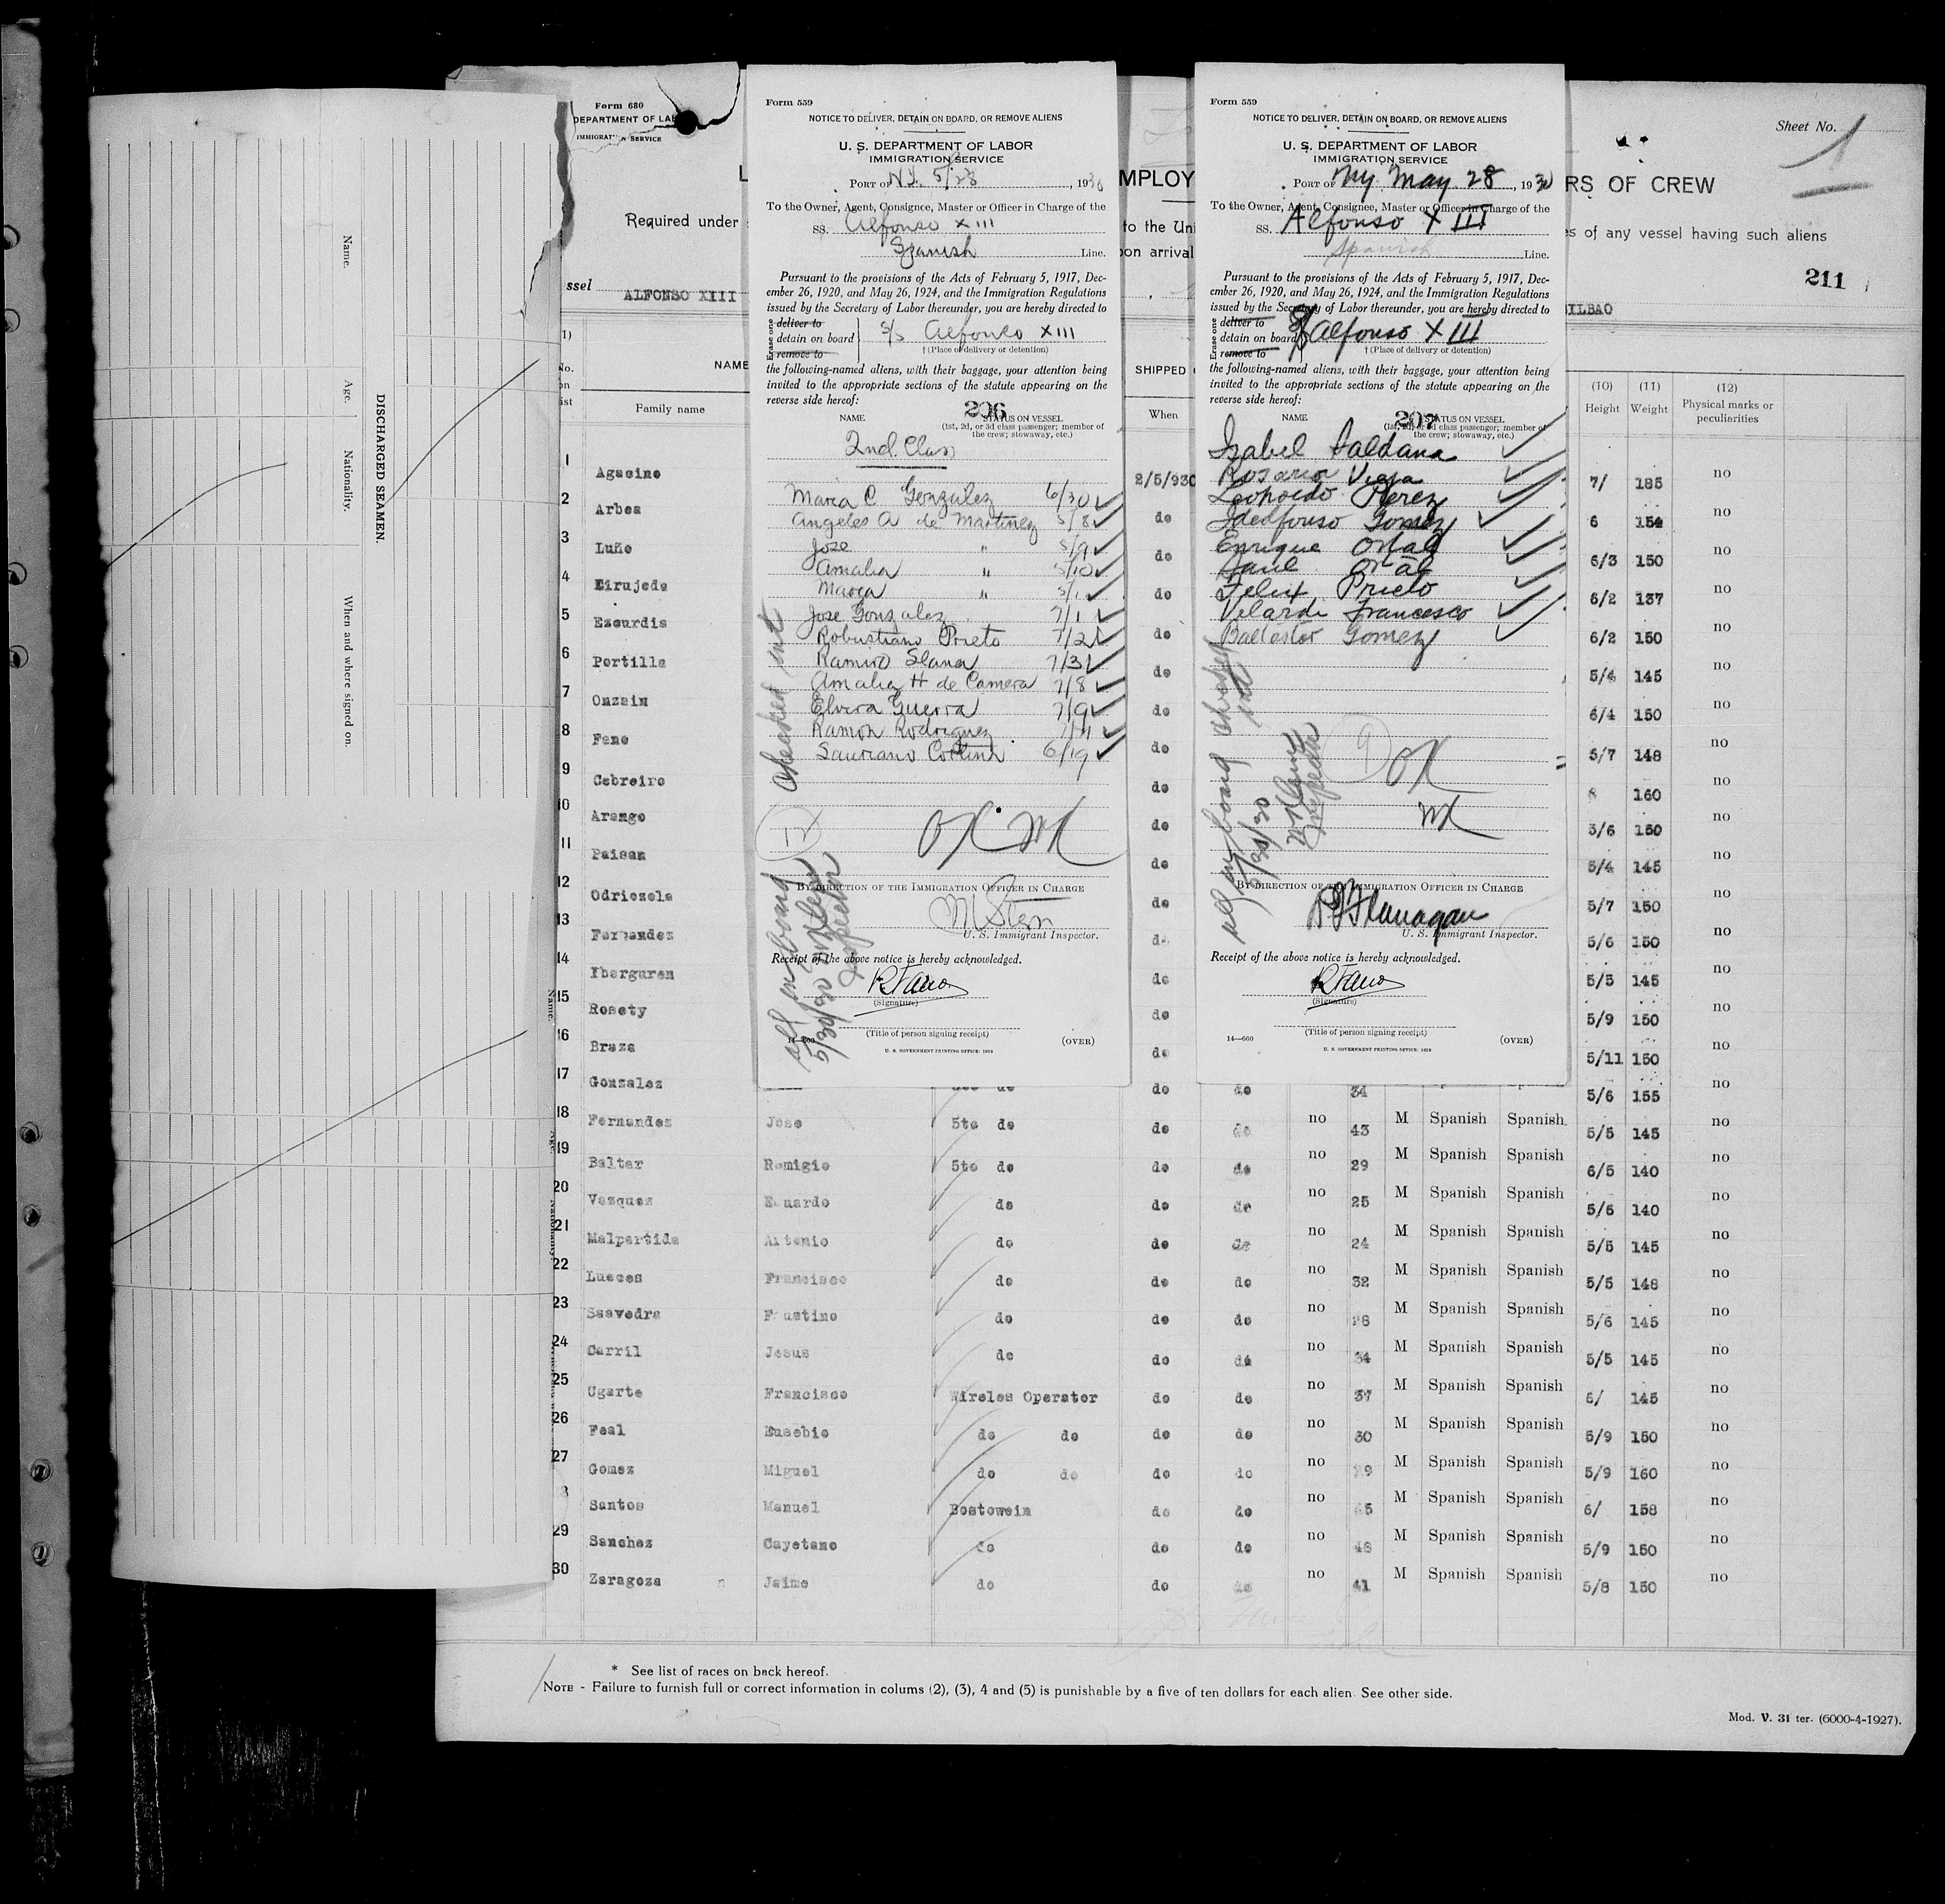 Form 680
DEPARTMENT OF LAB
IMMIGRAT N SERVICE
Required under
ssel ALFONSO XIII
Name.
Age.
Nationality.
When and where signed on.
DISCHARGED SEAMEN.
Form 559
NOTICE TO DELIVER, DETAIN ON BOARD, OR REMOVE ALIENS
U. S. DEPARTMENT OF LABOR
IMMIGRATION SERVICE
PORT OF N.Y. 5/28, 1930
To the Owner, Agent, Consignee, Master or Officer in Charge of the
SS. Alfonso XIII
Spanish Line.
Pursuant to the provisions of the Acts of February 5, 1917, Dec-
ember 26, 1920, and May 26, 1924, and the Immigration Regulations
issued by the Secretary of Labor thereunder, you are hereby directed to
Erase one
deliver to
detain on board S/S Alfonso XIII
remove to † (Place of delivery or detention)
the following-named aliens, with their baggage, your attention being
invited to the appropriate sections of the statute appearing on the
reverse side hereof:
206
NAME STATUS ON VESSEL
(1st, 2d, or 3d class passenger; member of
the crew; stowaway, etc.)
2nd. Class
Maria C Gonzalez 6/30
Angeles A de Martinez 5/8
Jose " 5/9
Amalia " 5/10
" 5/11
Jose Gonzalez 7/1
Robustiano Prieto 7/2
Ramiro Llana 7/3
Amalia H de Camera 7/8
Elvira Guerra 7/9
Ramon Rodriguez 7/11
Cortina 6/19
OK
all on board
5/30/30
Inspector
BY DIRECTION OF THE IMMIGRATION OFFICER IN CHARGE
M Stern
U. S. Immigrant Inspector.
Receipt of the above notice is hereby acknowledged.
R Fano
(Signature)
(Title of person signing receipt)
14—660 (OVER)
U. S. GOVERNMENT PRINTING OFFICE: 1929
MPLOY
to the Uni
on arrival
Form 559
NOTICE TO DELIVER, DETAIN ON BOARD, OR REMOVE ALIENS
U. S. DEPARTMENT OF LABOR
IMMIGRATION SERVICE
PORT OF NY. May 28, 1930
To the Owner, Agent, Consignee, Master or Officer in Charge of the
SS. Alfonso XIII
Spanish Line.
Pursuant to the provisions of the Acts of February 5, 1917, Dec-
ember 26, 1920, and May 26, 1924, and the Immigration Regulations
issued by the Secretary of Labor thereunder, you are hereby directed to
Erase one
deliver to
detain on board S/S Alfonso XIII
remove to † (Place of delivery or detention)
the following-named aliens, with their baggage, your attention being
invited to the appropriate sections of the statute appearing on the
reverse side hereof:
207
NAME STATUS ON VESSEL
(1st, 2d, or 3d class passenger; member of
the crew; stowaway, etc.)
Izabel Saldana
Rosario Viega
Leopoldo Perez
Idedfonso Gomez
Enrique Oñal
Oñal
Felix Prieto
Velardi Francesco
Ballastor Gomez
9
OK
all on board
5/30/30
Inspector
BY DIRECTION OF THE IMMIGRATION OFFICER IN CHARGE
Flanagan
U. S. Immigrant Inspector.
Receipt of the above notice is hereby acknowledged.
R Fano
(Signature)
(Title of person signing receipt)
14—660 (OVER)
U. S. GOVERNMENT PRINTING OFFICE: 1929
Sheet No. 1
RS OF CREW
es of any vessel having such aliens
211
BILBAO
NAME SHIPPED
Family name When (10) Height (11) Weight (12) Physical marks or peculiarities
1 Agacino 2/5/930 7/ 185 no
2 Arbea do 6 154 no
3 Luño do 6/3 150 no
4 Eirujede do 6/2 137 no
5 Ezcurdia do 6/2 150 no
6 Portilla do 5/4 145 no
7 Onzain do 6/4 150 no
8 Fano do 5/7 148 no
9 Cabreiro do 160 no
10 Arango do 5/6 150 no
11 Paisan do 5/4 145 no
12 Odriozola do 5/7 150 no
13 Fernandez do 5/6 150 no
14 Ybarguren do 5/5 145 no
15 Rosety do 5/9 150 no
16 Braza do 5/11 150 no
17 Gonzalez do do do 34 5/6 155 no
18 Fernandez Jose 5to do do do no 43 M Spanish Spanish 5/5 145 no
19 Baltar Remigio 5to do do do no 29 M Spanish Spanish 6/5 140 no
20 Vazquez Eduardo do do do no 25 M Spanish Spanish 5/6 140 no
21 Malpartida Antonio do do do no 24 M Spanish Spanish 5/5 145 no
22 Luaces Francisco do do do no 32 M Spanish Spanish 5/5 148 no
23 Saavedra Faustino do do do no 28 M Spanish Spanish 5/6 145 no
24 Carril Jesus do do do no 34 M Spanish Spanish 5/5 145 no
25 Ugarte Francisco Wireles Operator do do no 37 M Spanish Spanish 6/ 145 no
26 Feal Eusebio do do do do no 30 M Spanish Spanish 5/9 150 no
27 Gomez Miguel do do do do no 29 M Spanish Spanish 5/9 160 no
Santos Manuel Bostowein do do no 45 M Spanish Spanish 6/ 158 no
29 Sanchez Cayetano do do do no 48 M Spanish Spanish 5/9 150 no
30 Zaragoza Jaime do do do no 41 M Spanish Spanish 5/8 150 no
* See list of races on back hereof.
NOTE - Failure to furnish full or correct information in colums (2), (3), 4 and (5) is punishable by a five of ten dollars for each alien. See other side.
Mod. V. 31 ter. (6000-4-1927).